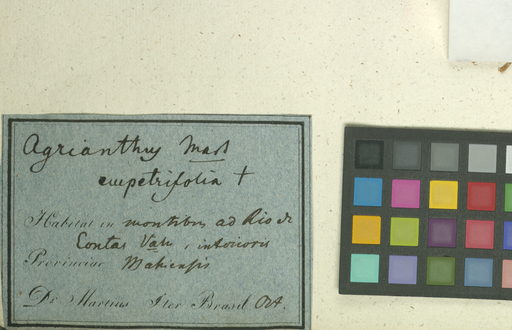 Agrianthus Mart
empetrifolia +
Habitat in montibus ad Rio de
Contas, interioris
Provinciae Bahiensis
Dr. Martius Iter Brasil Oct.